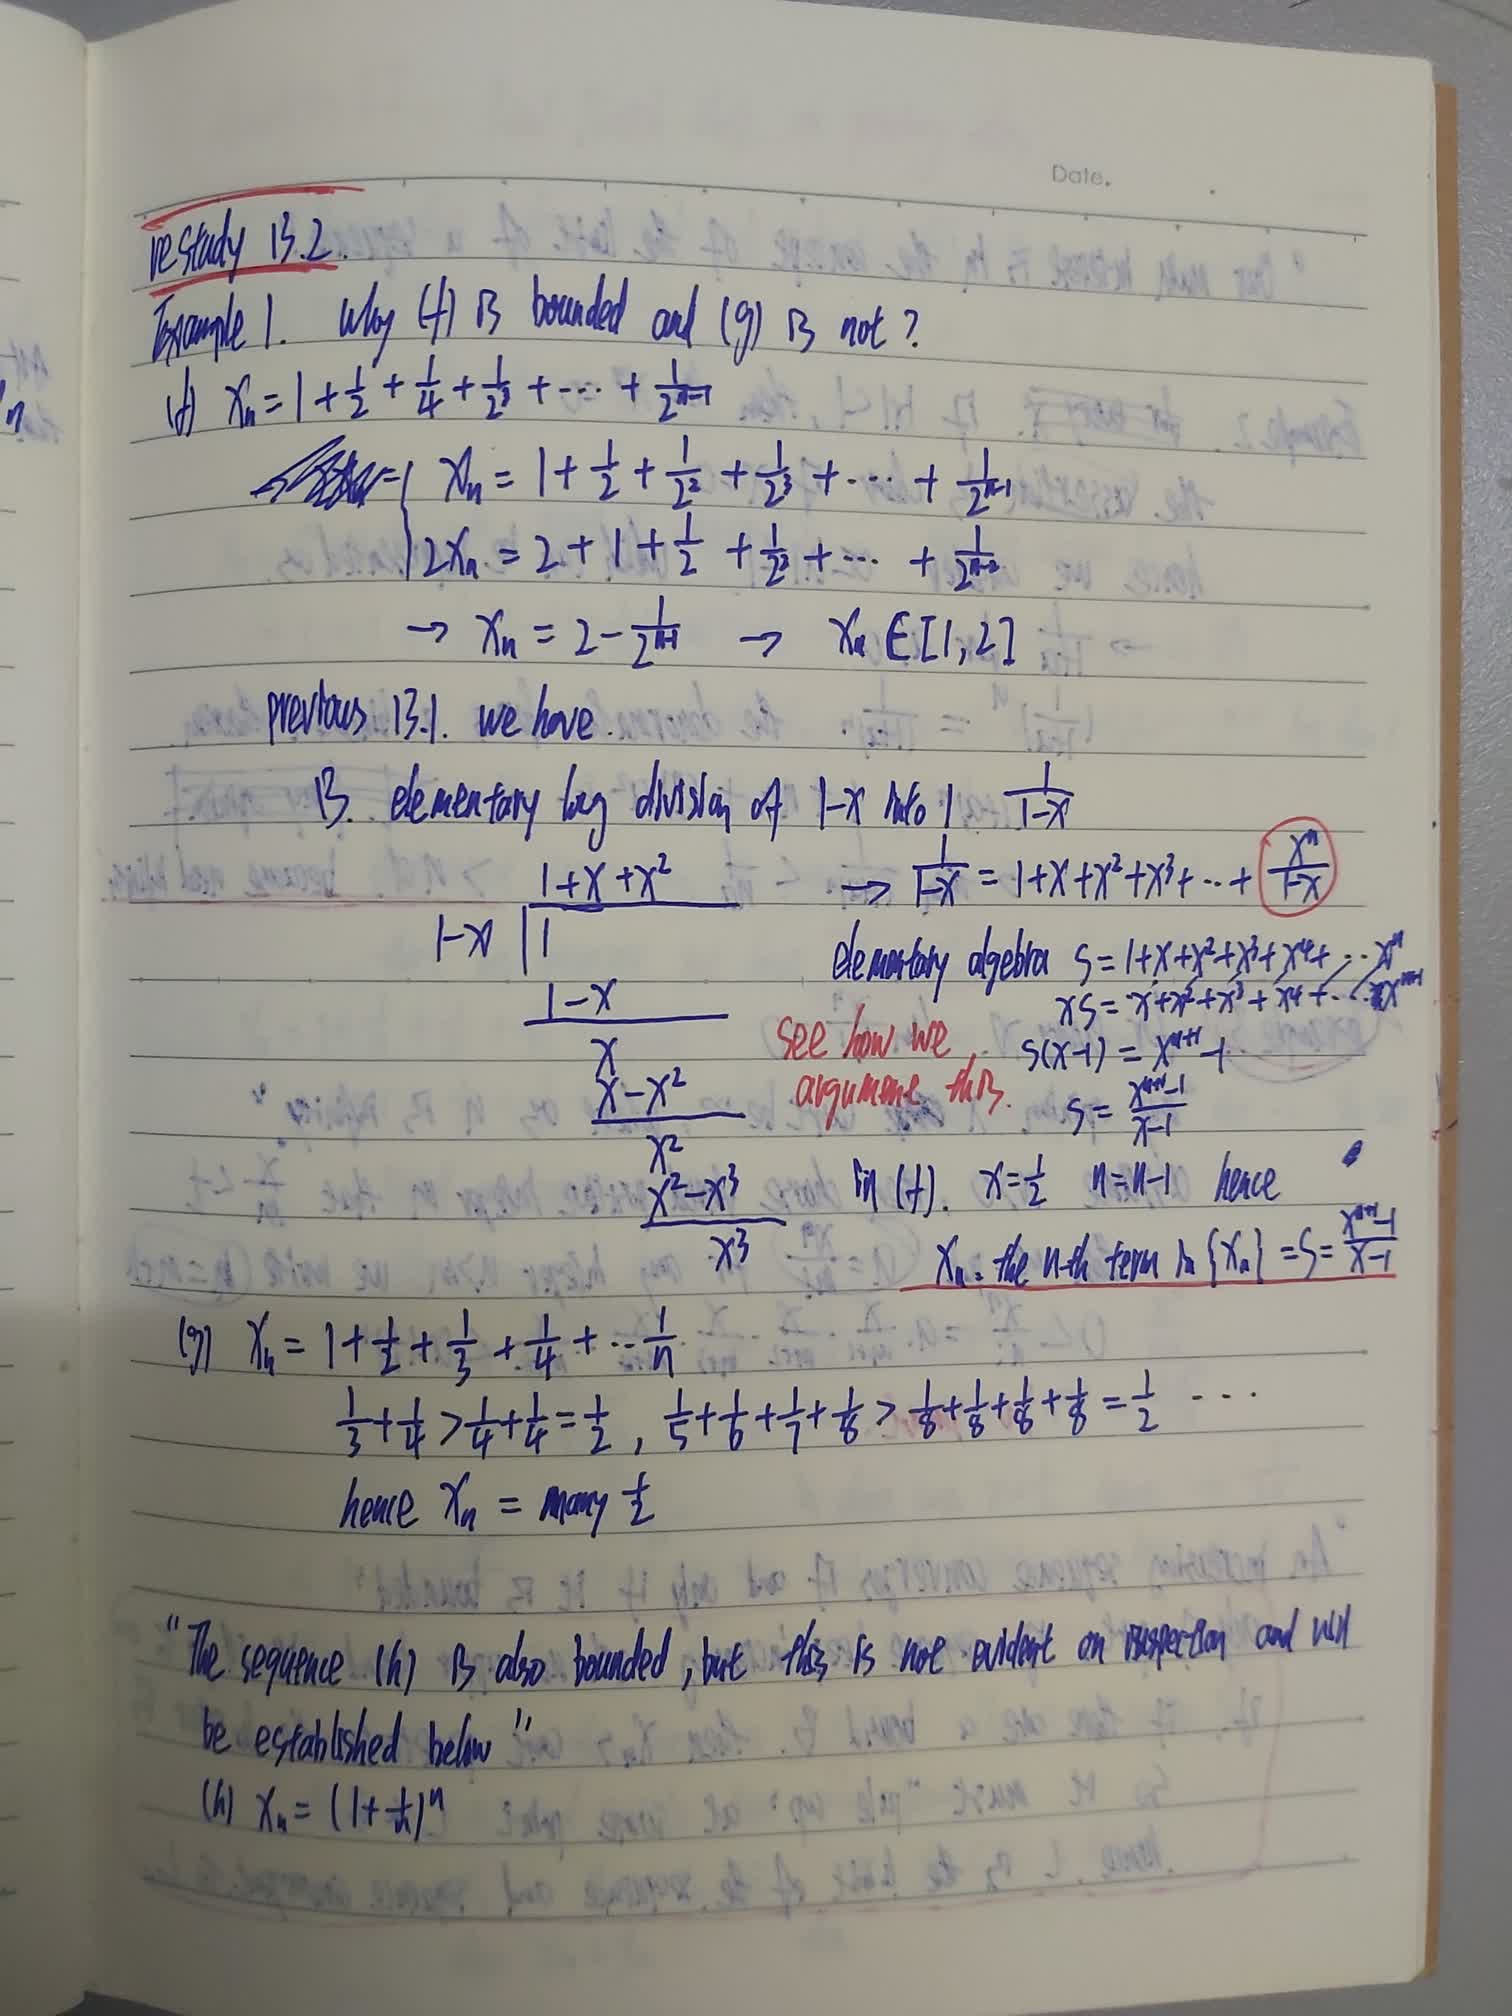 Date.
restudy 13.2.
Example 1. why (f) is bounded and (g) is not?
(f) xₙ = 1 + 1/2 + 1/4 + 1/2³ + ··· + 1/2ⁿ⁻¹
xₙ = 1 + 1/2 + 1/2² + 1/2³ + ··· + 1/2ⁿ⁻¹
2xₙ = 2 + 1 + 1/2 + 1/2² + ··· + 1/2ⁿ⁻²
→ xₙ = 2 − 1/2ⁿ⁻¹ → xₙ ∈ [1, 2]
previous 13.1. we have.
13. elementary long division of 1−x into 1 1/(1−x)
1 + x + x²
1−x | 1
1 − x
x
x − x²
x²
x² − x³
x³
→ 1/(1−x) = 1 + x + x² + x³ + ··· + xⁿ/(1−x)
elementary algebra S = 1 + x + x² + x³ + x⁴ + ··· xⁿ
xS = x + x² + x³ + x⁴ + ··· xⁿ⁺¹
S(x−1) = xⁿ⁺¹ − 1
S = (xⁿ⁺¹−1)/(x−1)
see how we
argument this.
in (f). x = 1/2 n = n−1 hence
xₙ = the n-th term in {xₙ} = S = (xⁿ⁺¹−1)/(x−1)
(g) xₙ = 1 + 1/2 + 1/3 + 1/4 + ··· 1/n
1/3 + 1/4 > 1/4 + 1/4 = 1/2, 1/5 + 1/6 + 1/7 + 1/8 > 1/8 + 1/8 + 1/8 + 1/8 = 1/2 ···
hence xₙ = many 1/2
"The sequence (h) is also bounded, but this is not evident on inspection and will
be established below"
(h) xₙ = (1 + 1/n)ⁿ